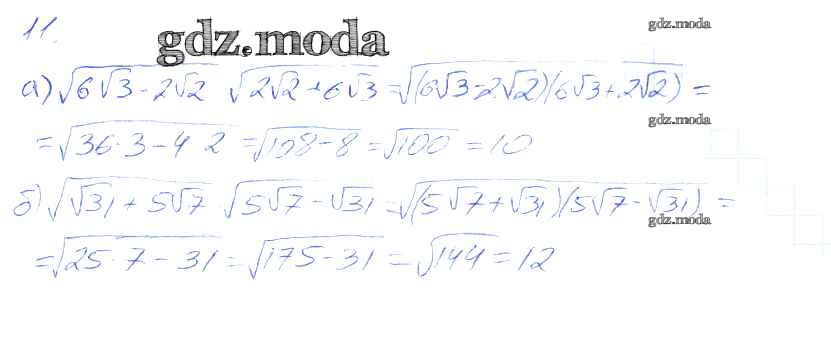 11.
gdz.moda
gdz.moda
а) √(6√3 - 2√2) √(2√2 + 6√3) = √((6√3 - 2√2)(6√3 + 2√2)) =
gdz.moda
= √(36·3 - 4 2) = √(108 - 8) = √100 = 10
б) √(√31 + 5√7) · √(5√7 - √31) = √((5√7 + √31)(5√7 - √31)) =
gdz.moda
= √(25·7 - 31) = √(175 - 31) = √144 = 12